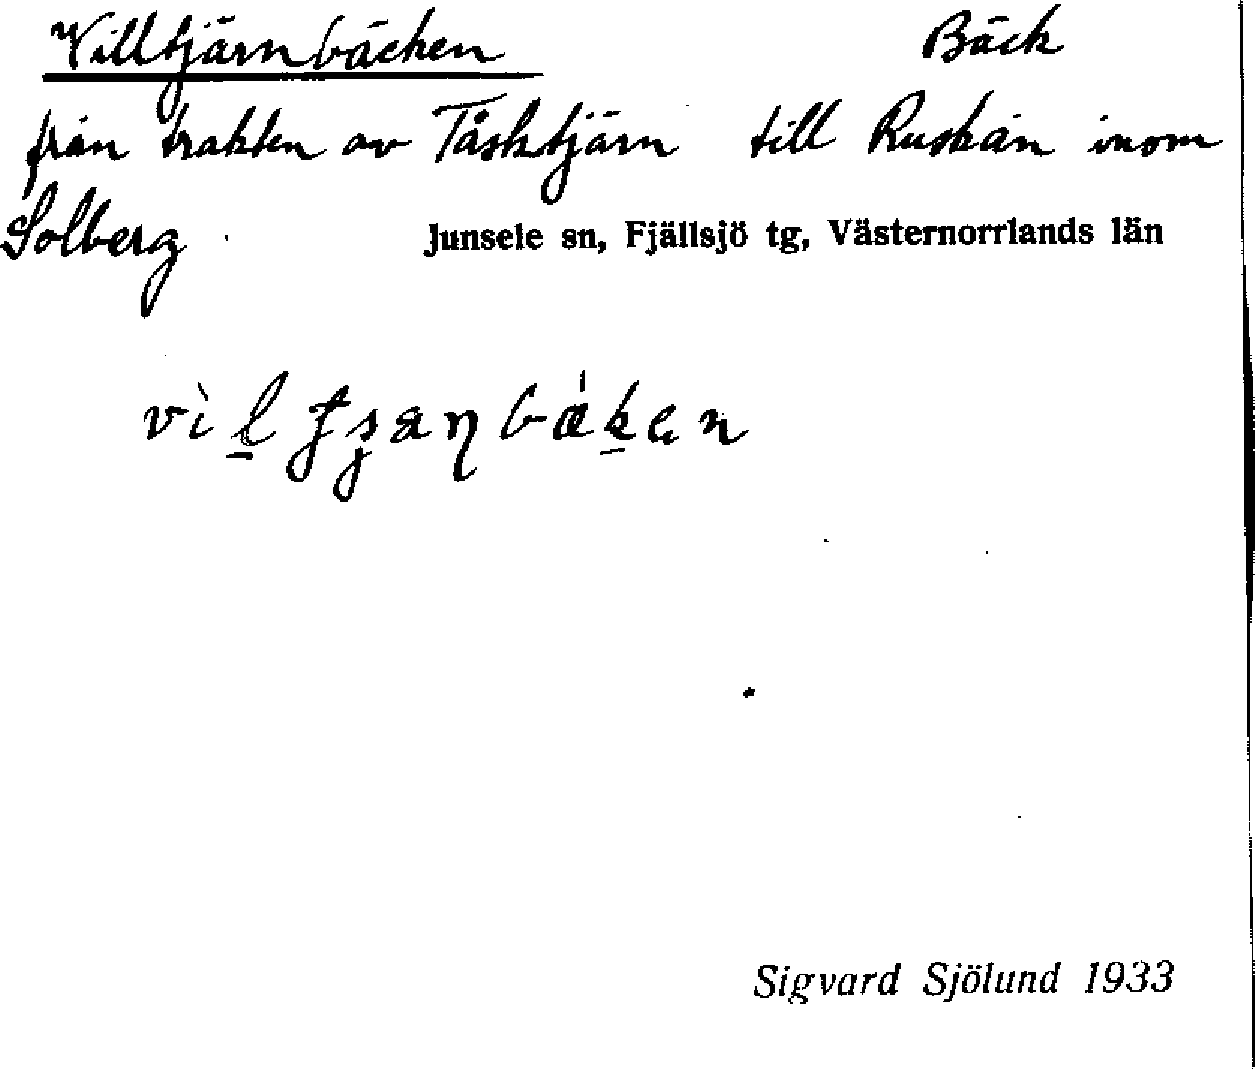 Villtjärnbäcken Bäck
från trakten av Tåsktjärn till Ruskån inom
Solberg. Junsele sn, Fjällsjö tg, Västernorrlands län
Sigvard Sjölund 1933